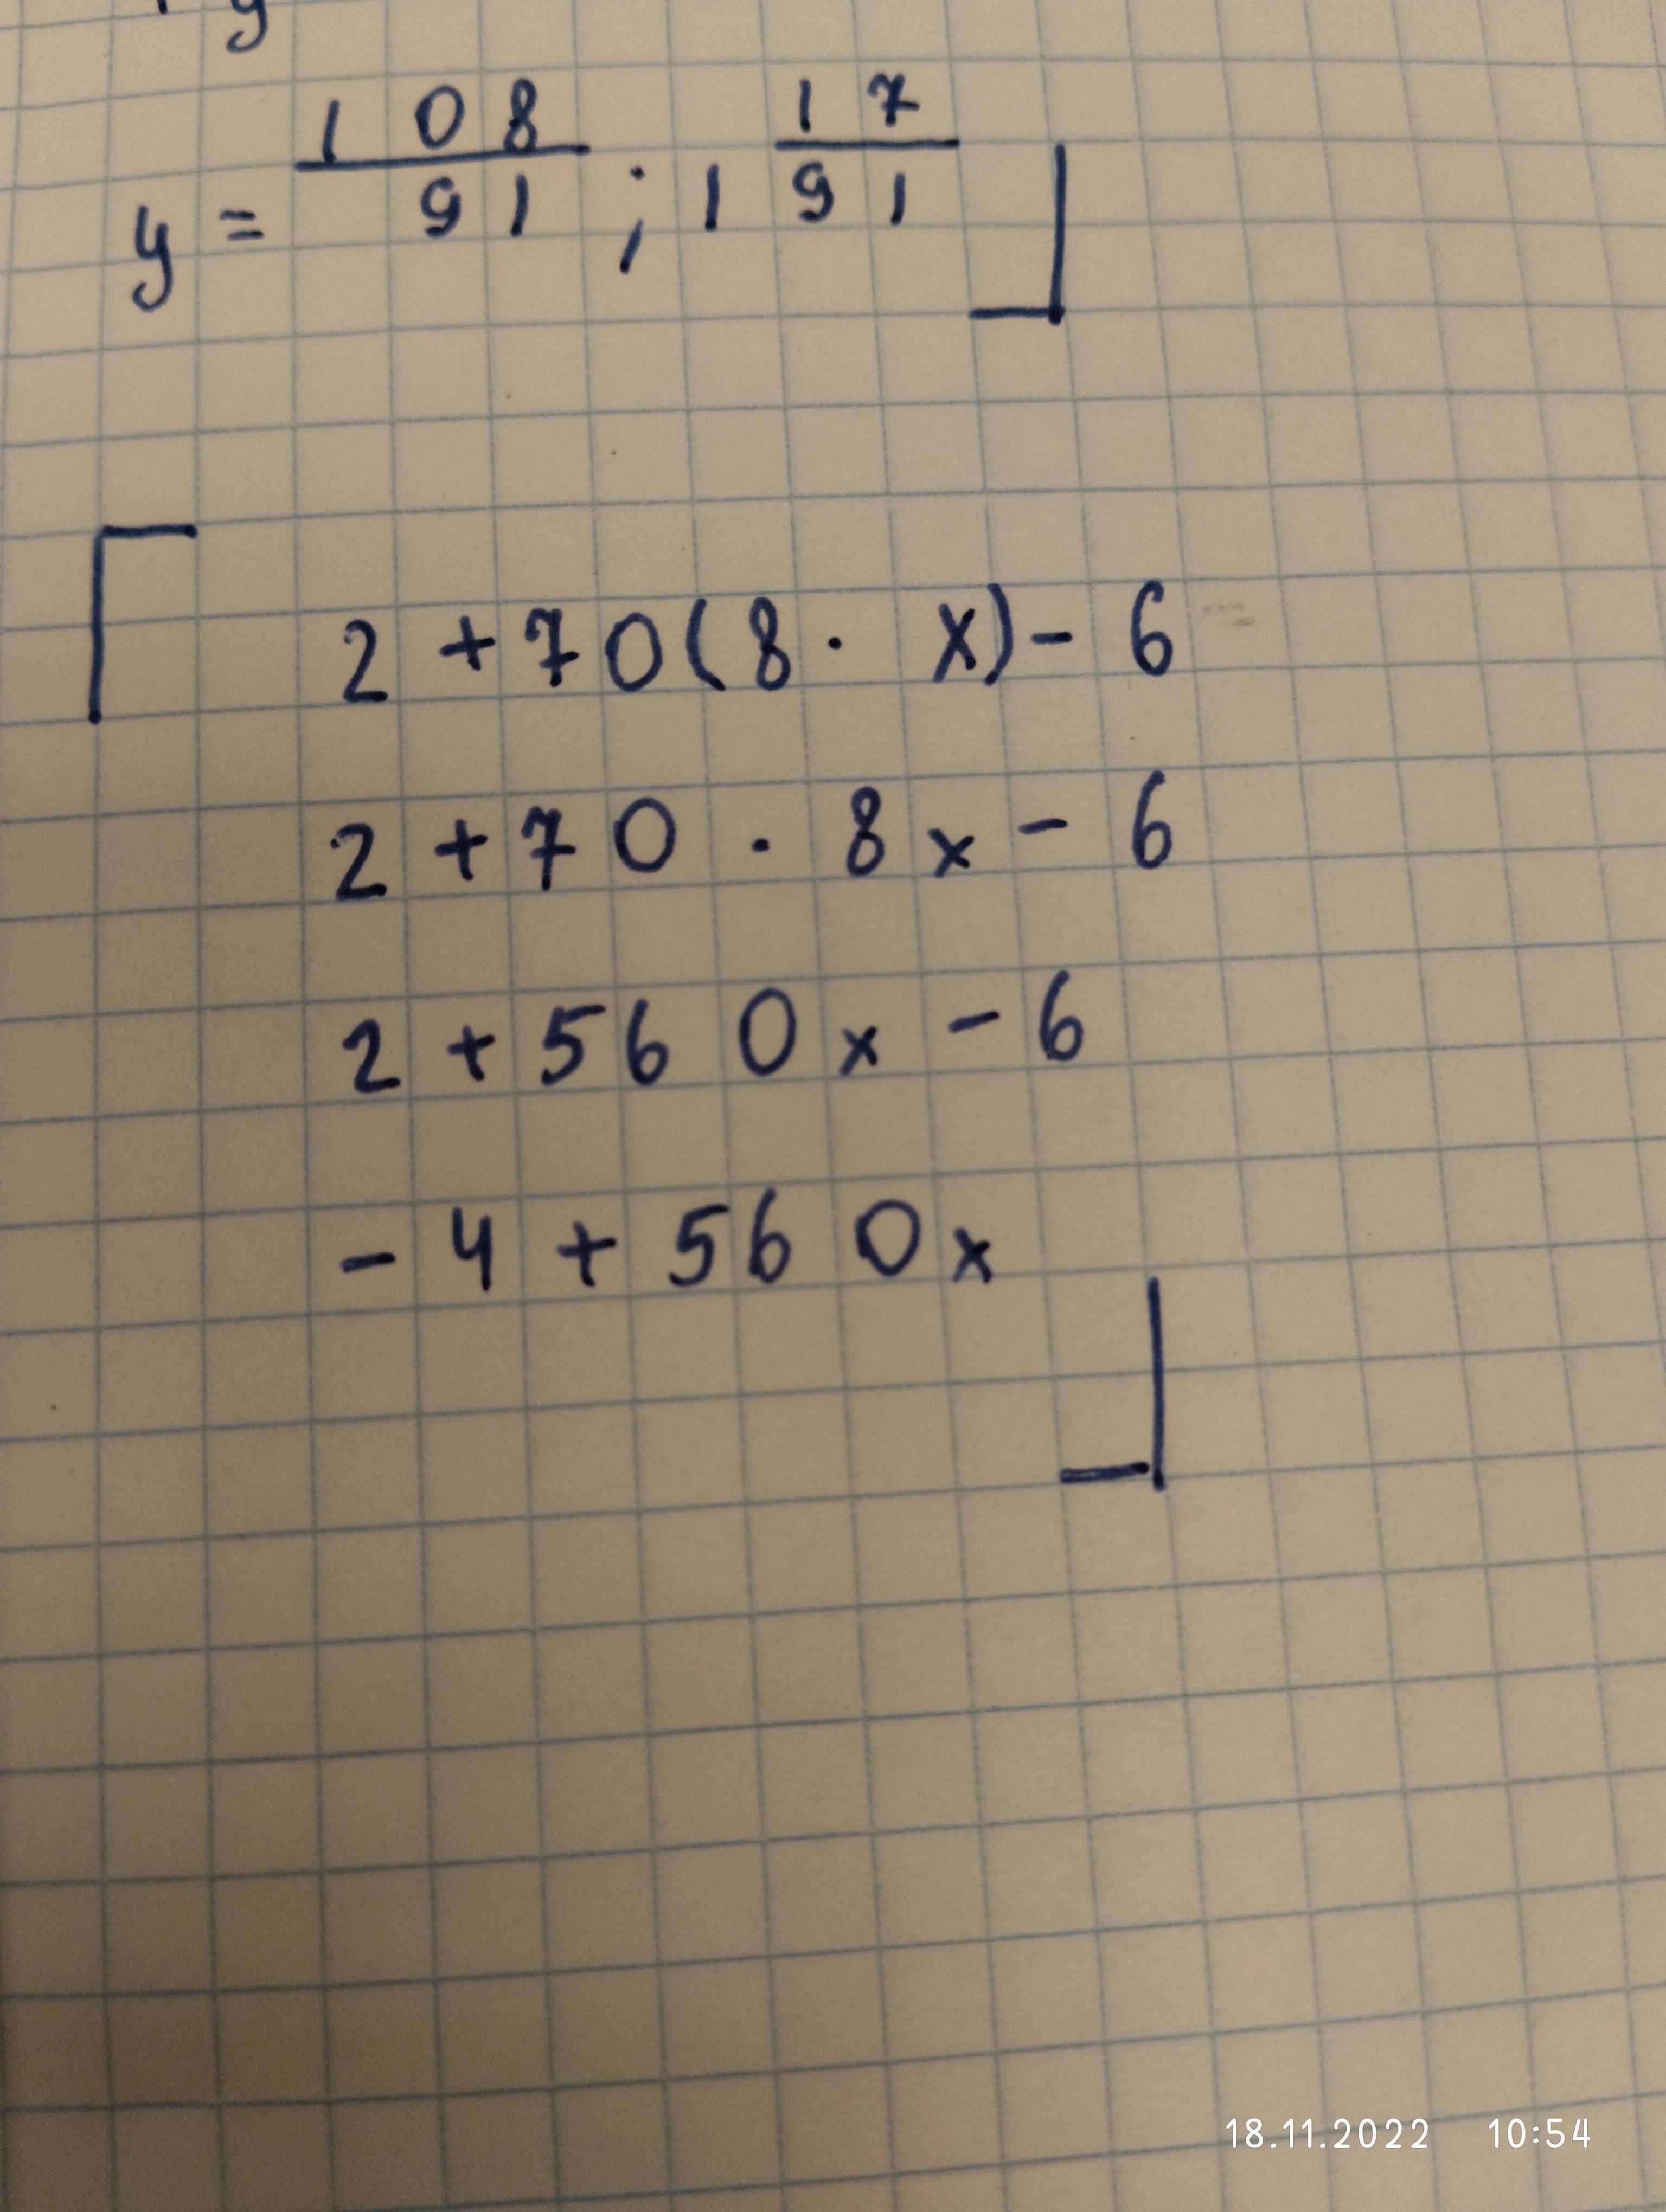 y
y = 108/91 ; 1 17/91
2 + 70(8 · x) - 6
2 + 70 · 8x - 6
2 + 560x - 6
- 4 + 560x
18.11.2022 10:54